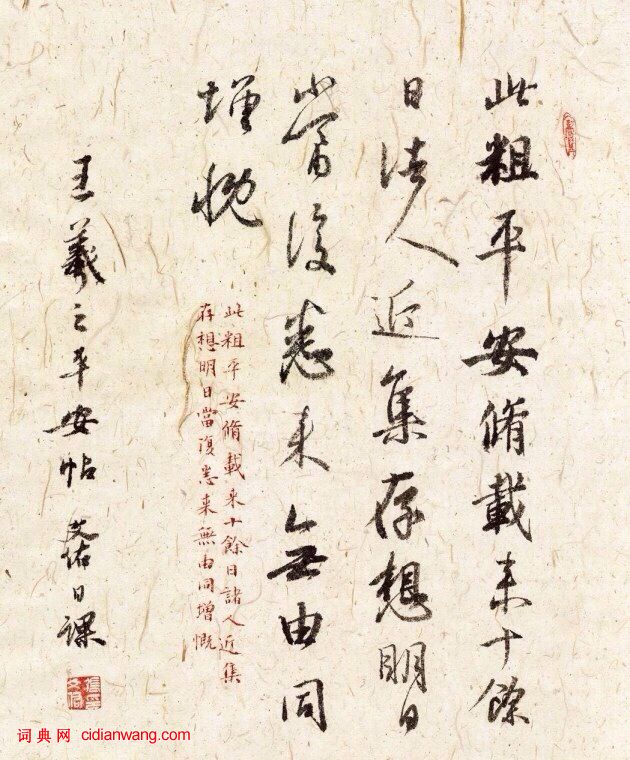 此粗平安脩載来十餘
日諸人近集存想明日
當復悉来無由同
增慨
此粗平安脩載来十餘日諸人近集
存想明日當復悉来無由同增慨
王羲之平安帖 文佑日課
词典网 cidianwang.com